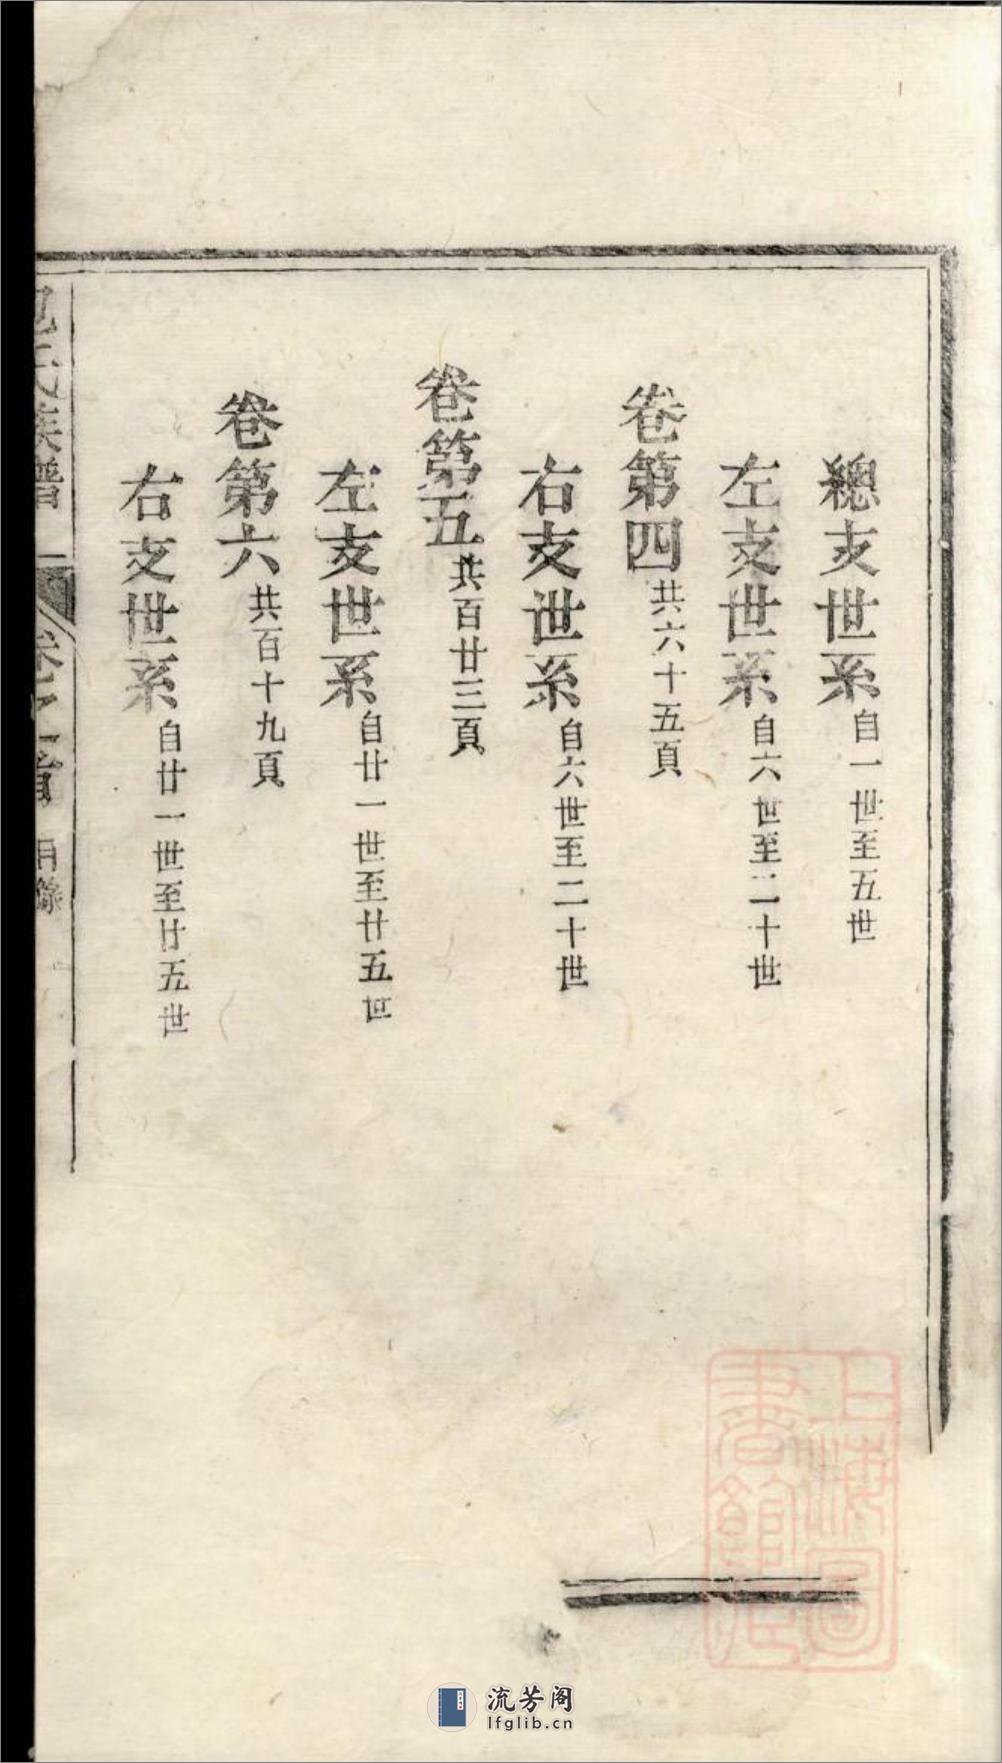 總支世系自一世至五世
左支世系自六世至二十世
卷第四共六十五頁
右支世系自六世至二十世
卷第五共百廿三頁
左支世系自廿一世至廿五世
卷第六共百十九頁
右支世系自廿一世至廿五世
氏族譜
卷之首
目錄
上海圖書館藏
流芳阁
lfglib.cn